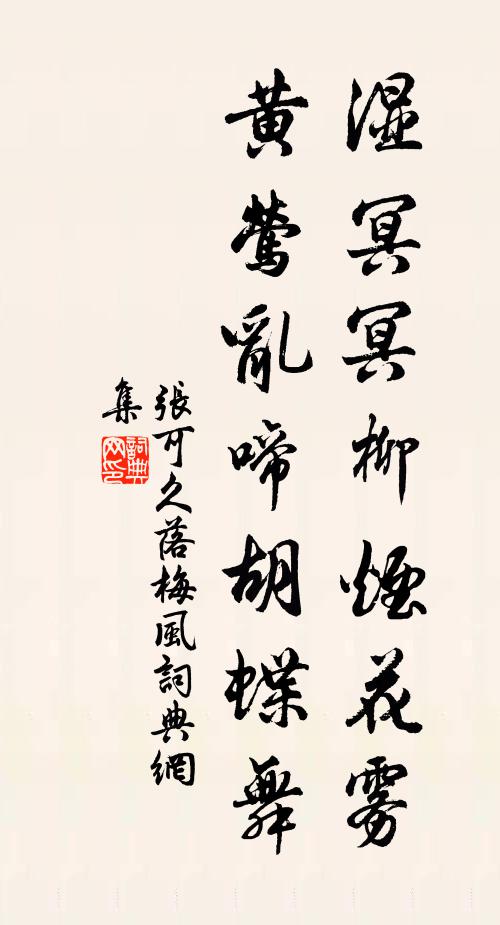 湿冥冥柳煙花雾
黄鶯亂啼胡蝶舞
張可久落梅風詞典網
集
詞典
网印